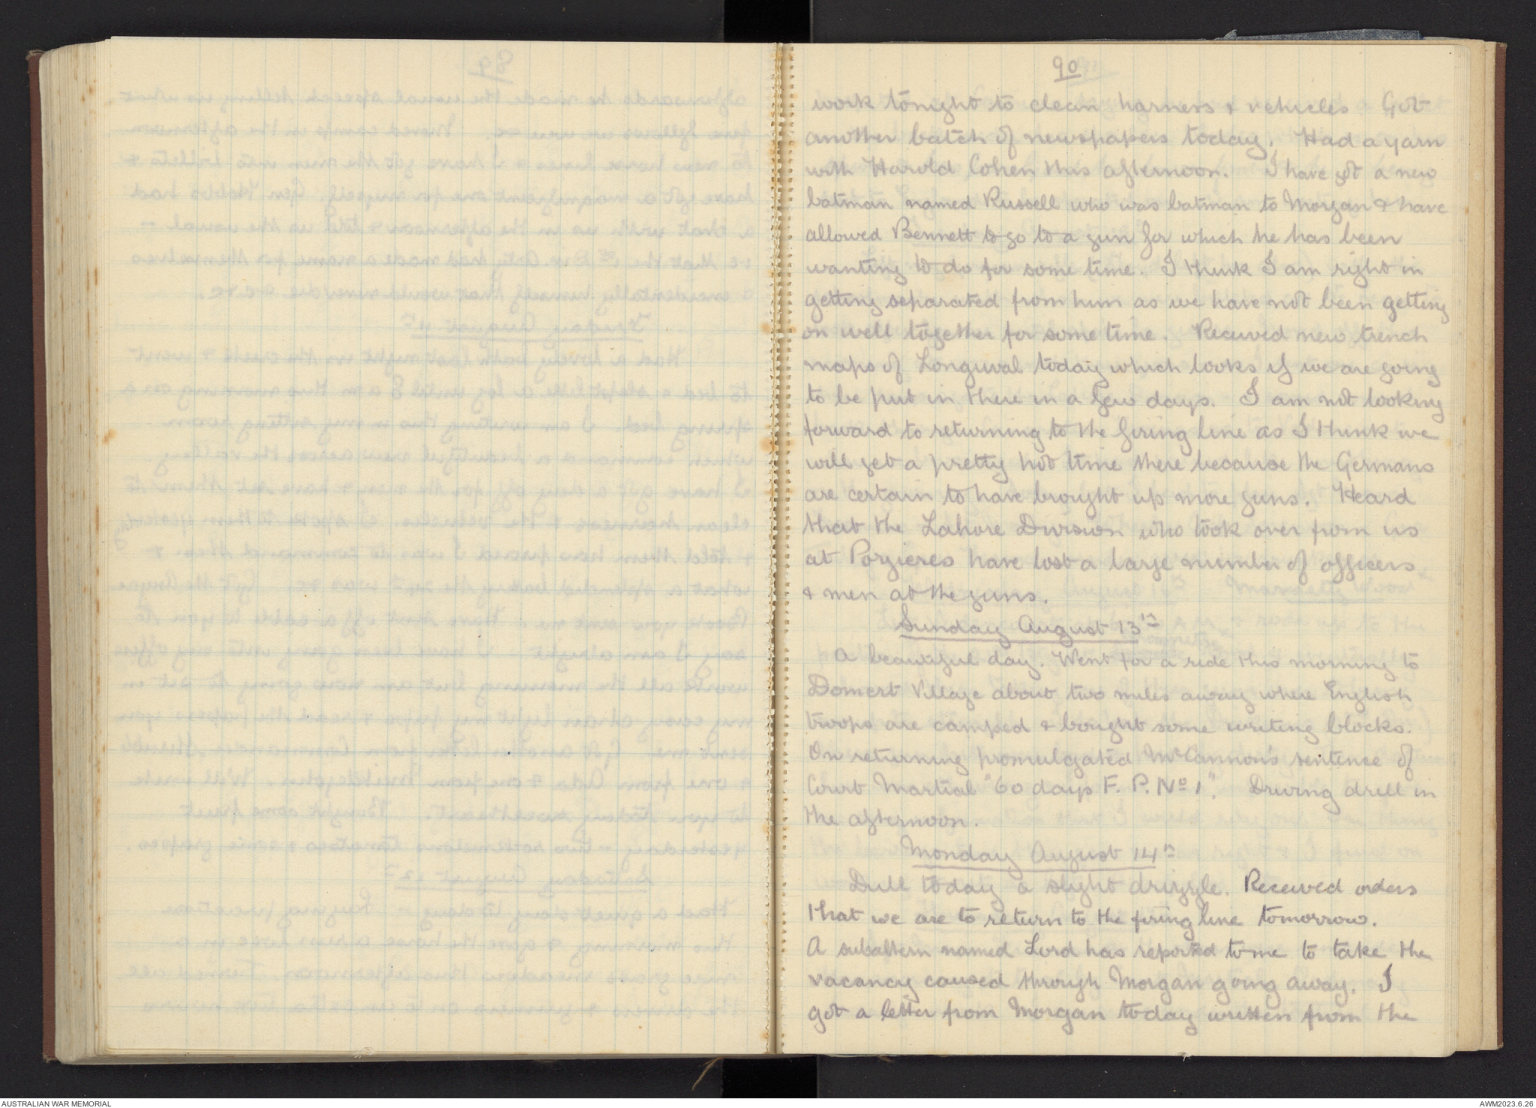 90
work tonight to clean harness & vehicles Got
another batch of newspapers today. Had a yarn
with Harold Cohen this afternoon. I have got a new
batman named Russell who was batman to Morgan & have
allowed Bennett to go to a gun for which he has been
wanting to do for some time. I think I am right in
getting separated from him as we have not been getting
on well together for some time. Received new trench
maps of Longuval today which looks if we are going
to be put in there in a few days. I am not looking
forward to returning to the firing line as I think we
will get a pretty hot time there because the Germans
are certain to have brought up more guns. Heard
that the Lahore Division who took over from us
at Pozieres have lost a large number of officers
& men at the guns.
Sunday August 13th
A beautiful day. Went for a ride this morning to
Domert Village about two miles away where English
troops are camped & bought some writing blocks.
On returning promulgated McCannon's sentence of
Court Martial "60 days F. P. No 1". Driving drill in
the afternoon.
Monday August 14th
Dull today a slight drizzle. Received orders
that we are to return to the firing line tomorrow.
A subaltern named Lord has reported to me to take the
vacancy caused through Morgan going away. I
got a letter from Morgan today written from the
AUSTRALIAN WAR MEMORIAL
AWM2023.6.26